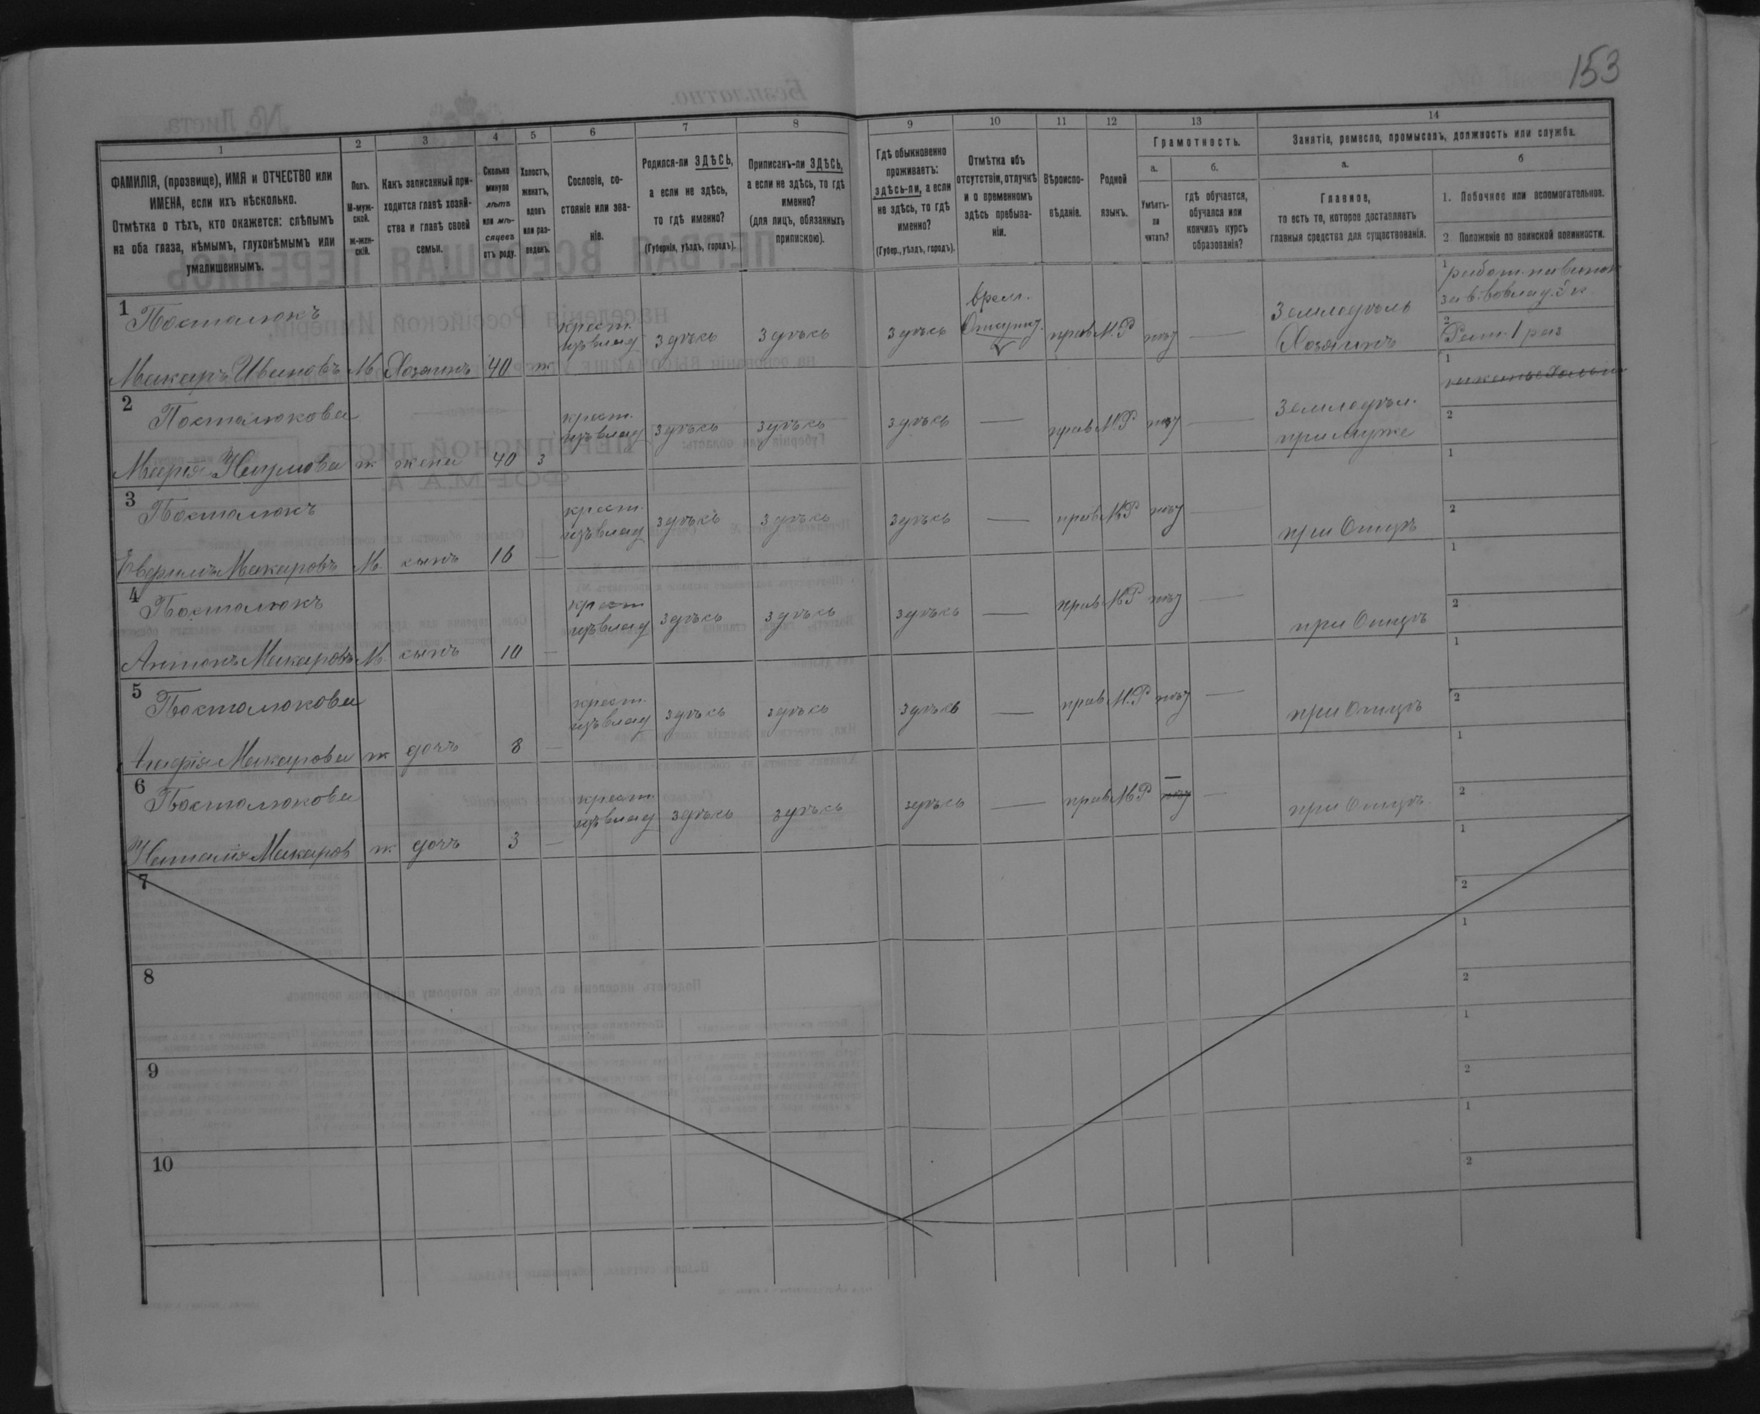 153
1 2 3 4 5 6 7 8 9 10 11 12 13 14
ФАМИЛІЯ, (прозвище), ИМЯ и ОТЧЕСТВО или ИМЕНА, если ихъ нѣсколько.
Отмѣтка о тѣхъ, кто окажется: слѣпымъ на оба глаза, нѣмымъ, глухонѣмымъ или умалишеннымъ.
Полъ.
М-муж-
ской.
ж-жен-
скій.
Какъ записанный при-
ходится главѣ хозяй-
ства и главѣ своей
семьи.
Сколько
минуло
лѣтъ
или мѣ-
сяцевъ
отъ роду.
Холостъ,
женатъ,
вдовъ
или раз-
веденъ.
Сословіе, со-
стояніе или зва-
ніе.
Родился-ли ЗДѢСЬ,
а если не здѣсь,
то гдѣ именно?
(Губернія, уѣздъ, городъ).
Приписанъ-ли ЗДѢСЬ,
а если не здѣсь, то гдѣ
именно?
(для лицъ, обязанныхъ
припискою).
Гдѣ обыкновенно
проживаетъ:
здѣсь-ли, а если
не здѣсь, то гдѣ
именно?
(Губер., уѣздъ, городъ).
Отмѣтка объ
отсутствіи, отлучкѣ
и о временномъ
здѣсь пребыва-
ніи.
Вѣроиспо-
вѣданіе.
Родной
языкъ.
Грамотность.
а. б.
Умѣетъ-
ли
читать?
гдѣ обучается,
обучался или
кончилъ курсъ
образованія?
Занятіе, ремесло, промыселъ, должность или служба.
а. б
Главное,
то есть то, которое доставляетъ
главныя средства для существованія.
1. Побочное или вспомогательное.
2. Положеніе по воинской повинности.
1 Постолюкъ
Макаръ Ивановъ М. Хозяинъ 40 ж крест. изъ влад здѣсь здѣсь здѣсь врем. Отсутст. прав М.Р нѣт — Земледѣль Хозяинъ
2 Постолюкова
Марія Наумова ж жена 40 з крест. изъ влад здѣсь здѣсь здѣсь — прав М.Р нѣт — Земледѣл. при мужѣ
3 Постолюкъ
Макаровъ М. сынъ 16 — крест. изъ влад здѣсь здѣсь здѣсь — прав М.Р нѣт — при Отцѣ
4 Постолюкъ
Антонъ Макаровъ М. сынъ 10 — крест изъ влад здѣсь здѣсь здѣсь — прав М.Р нѣт — при Отцѣ
5 Постолюкова
Макарова ж дочь 8 — крест. изъ влад здѣсь здѣсь здѣсь — прав М.Р нѣт — при Отцѣ
6 Постолюкова
Наталія Макаров ж дочь 3 — крест изъ влад здѣсь здѣсь здѣсь — прав М.Р — при Отцѣ
7
8
9
10